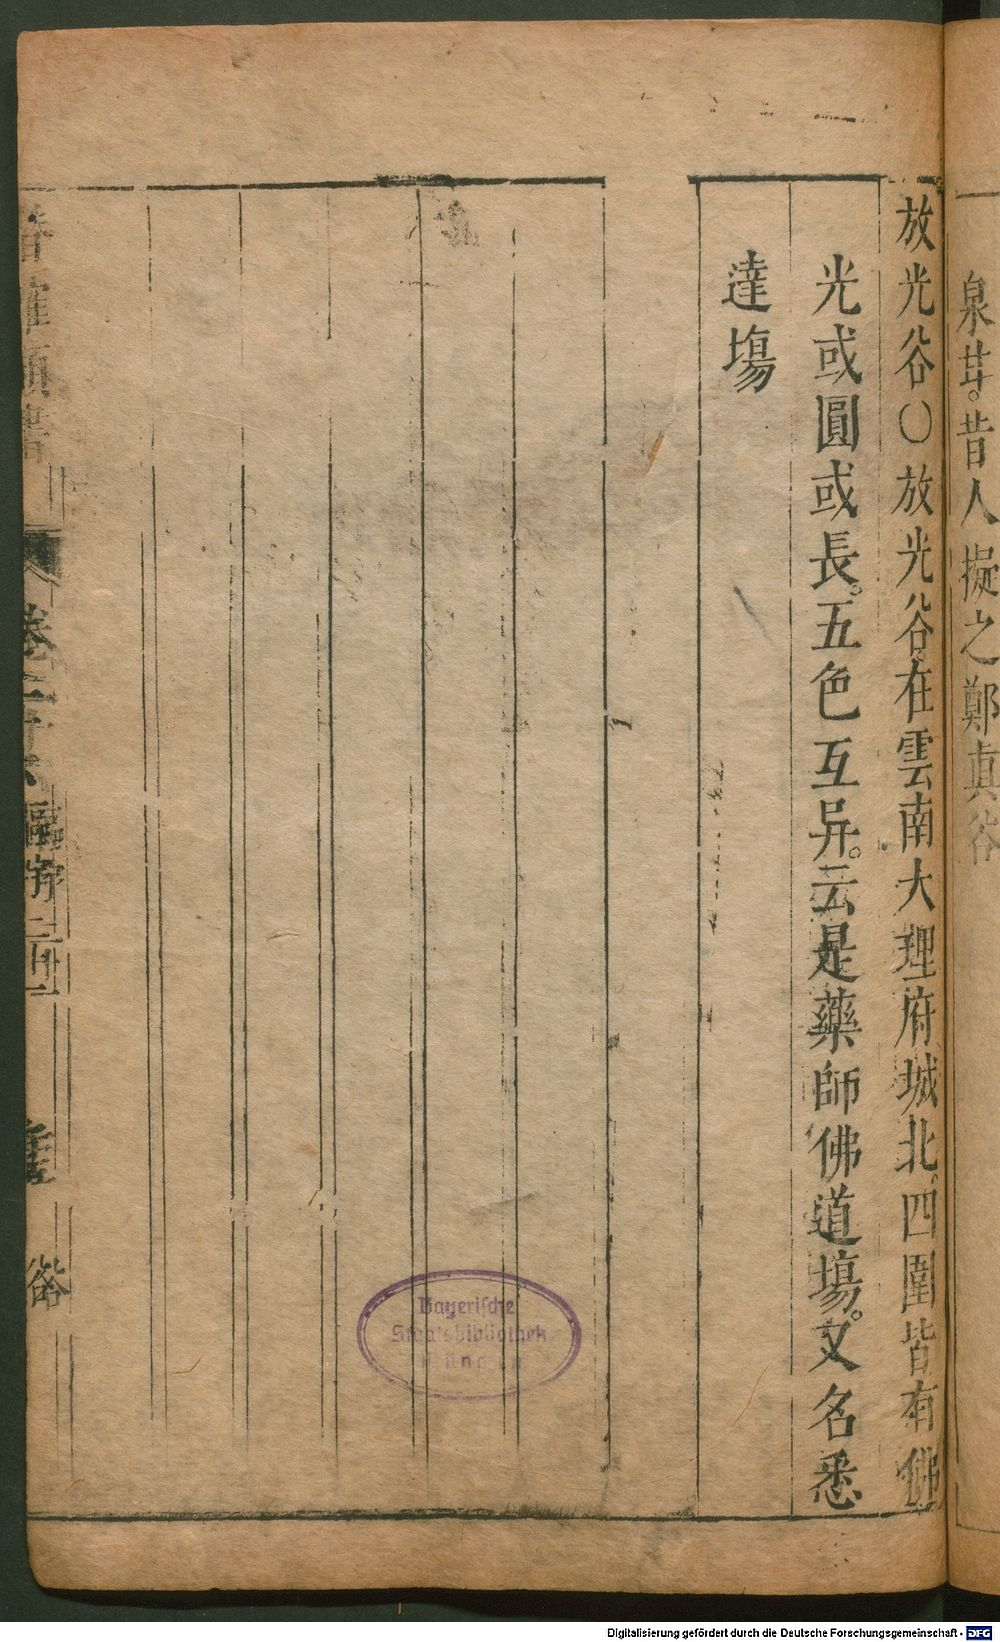 泉甘。昔人擬之鄭真谷
放光谷〇放光谷在雲南大理府城北四圍皆有佛
光或圓或長。五色互异。云是藥師佛道塲。又名悉
達塲
卷之二十六
谷
Bayerische
Staatsbibliothek
München
Digitalisierung gefördert durch die Deutsche Forschungsgemeinschaft - DFG